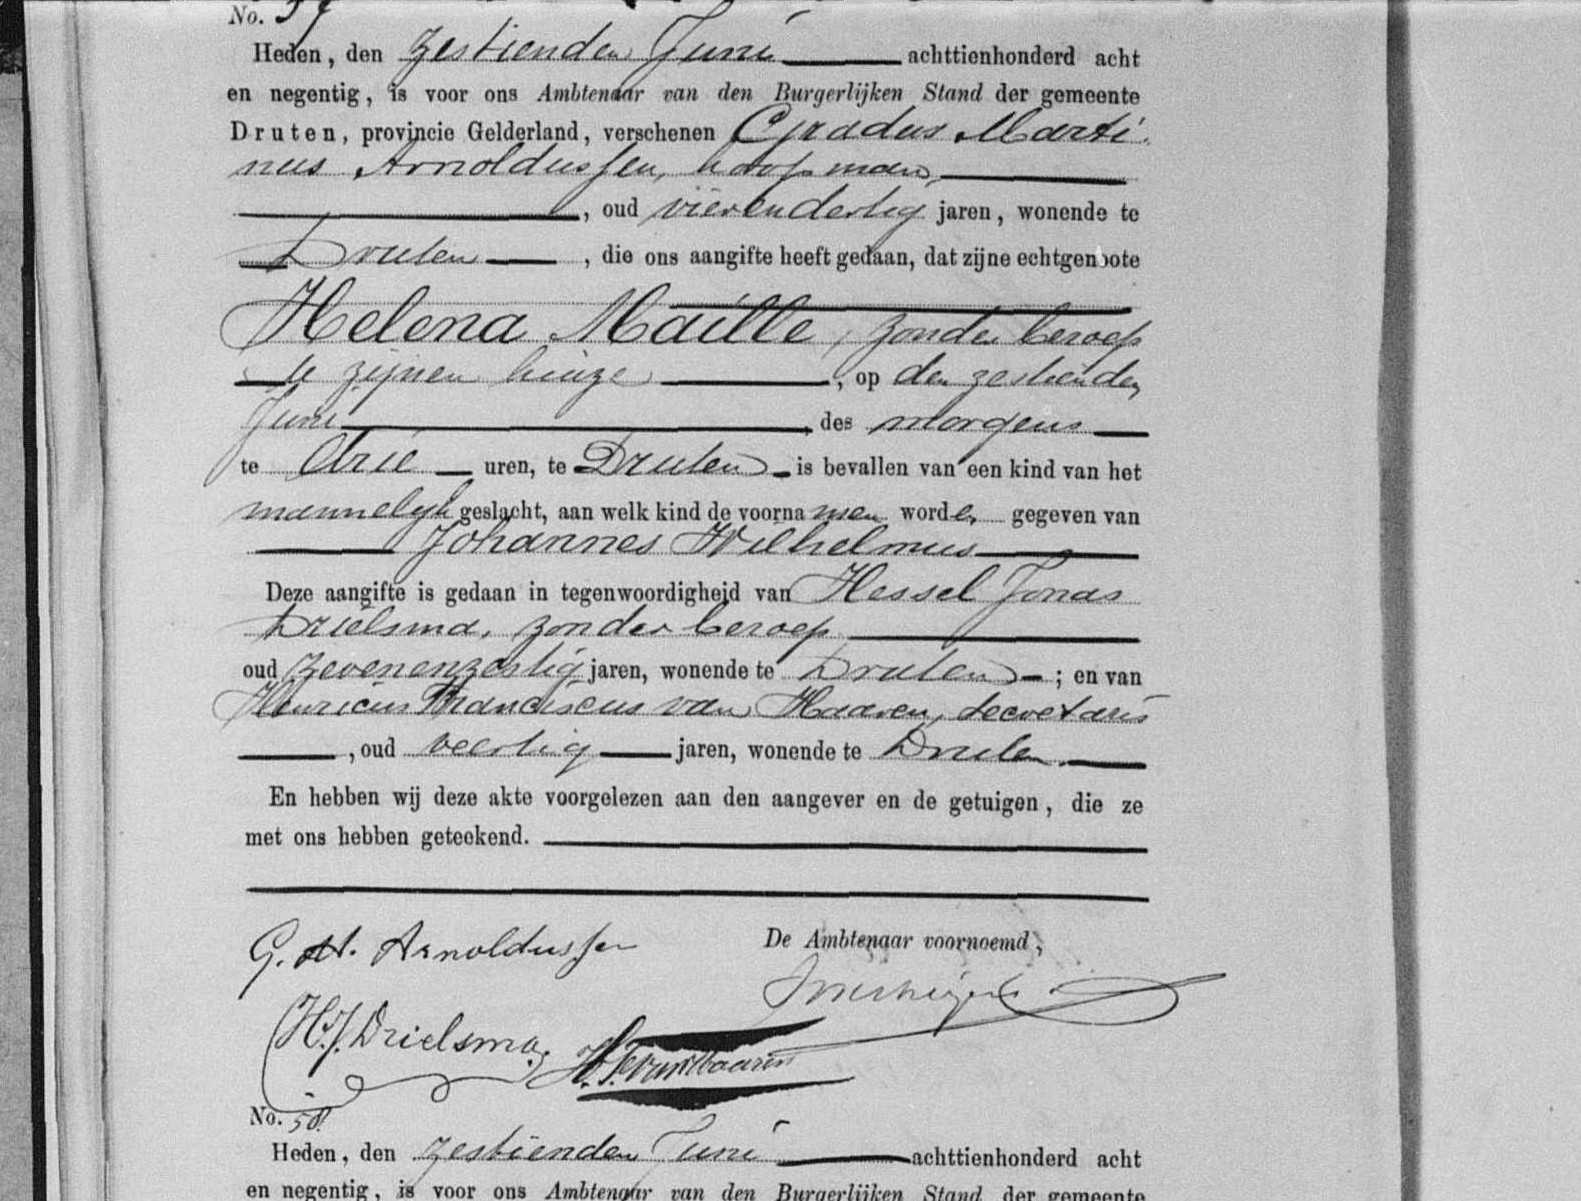 No. 57
Heden, den zestienden Juni achttienhonderd acht
en negentig, is voor ons Ambtenaar van den Burgerlijken Stand der gemeente
Druten, provincie Gelderland, verschenen Gradus Marti-
nus Arnoldussen, koopman,
, oud vierendertig jaren, wonende te
Druten , die ons aangifte heeft gedaan, dat zijne echtgenoote
Helena Maille, zonder beroep
te zijnen huize , op den zestienden
Juni , des morgens
te drie uren, te Druten is bevallen van een kind van het
mannelijk geslacht, aan welk kind de voornamen worden gegeven van
Johannes Wilhelmus
Deze aangifte is gedaan in tegenwoordigheid van Hessel Jonas
Drielsma, zonder beroep
oud zevenenzestig jaren, wonende te Druten ; en van
Henricus Franciscus van Haaren, secretaris
, oud veertig jaren, wonende te Druten
En hebben wij deze akte voorgelezen aan den aangever en de getuigen, die ze
met ons hebben geteekend.
G. M. Arnoldussen
De Ambtenaar voornoemd,
H.J. Drielsma
H. F. van Haaren
No. 58.
Heden, den zestienden Juni achttienhonderd acht
en negentig, is voor ons Ambtenaar van den Burgerlijken Stand der gemeente